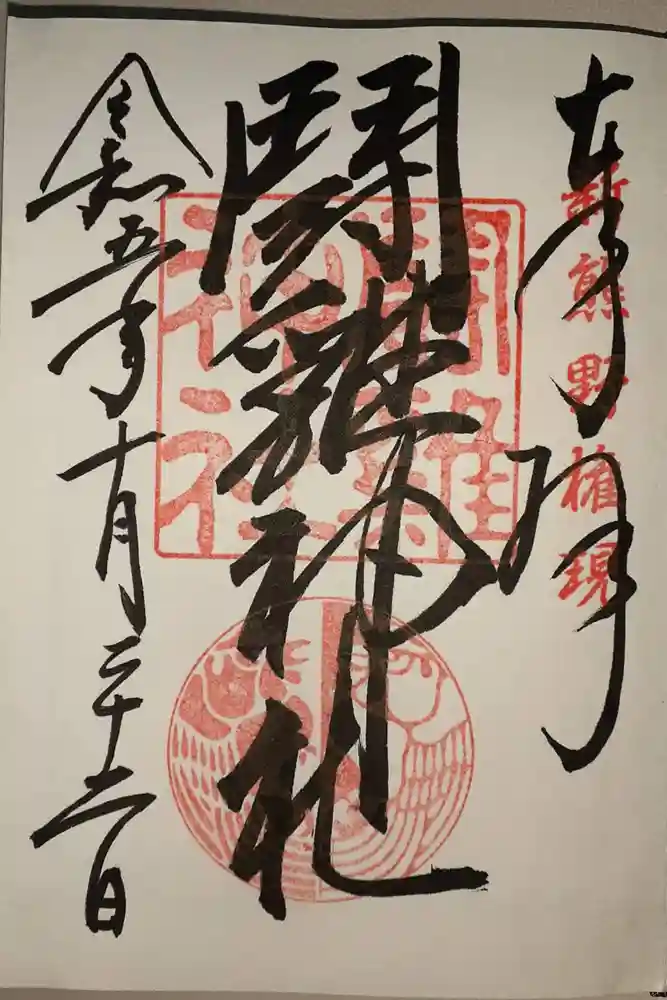 奉拝
新熊野権現
闘雞神社
闘雞神社
令和五年十月二十二日